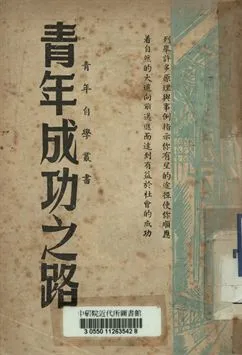 列舉許多原理與事例指示你有星的途徑使你順應
着自然的大道向前邁進而達到有益於社會的成功
青年自學叢書
青年成功之路
中研院近代所圖書館
3 0550 11263542 8